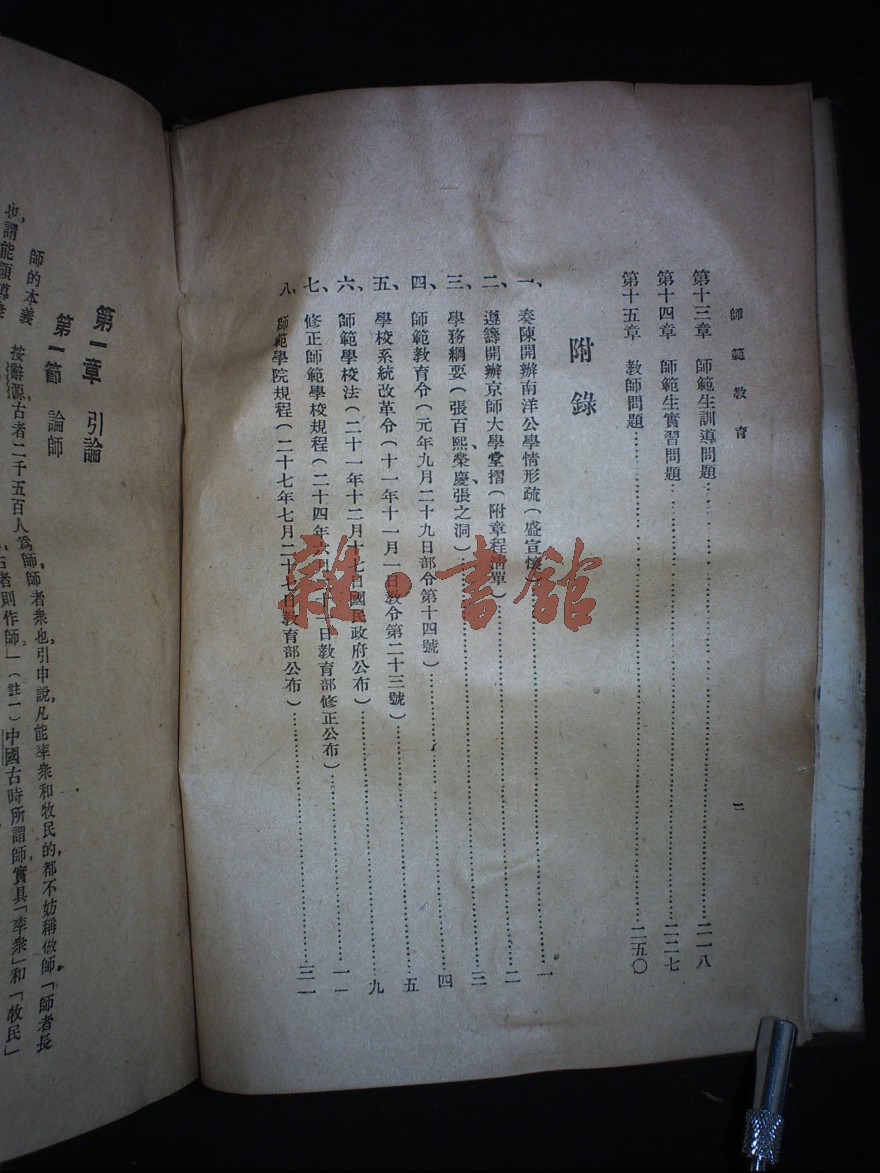 師範教育
二
第十三章　師範生訓導問題……二一八
第十四章　師範生實習問題……二二七
第十五章　教師問題……二五〇
附錄
一、奏陳開辦南洋公學情形疏（盛宣懷）……一
二、遵籌開辦京師大學堂摺（附章程清單）……二
三、學務綱要（張百熙、榮慶、張之洞）……三
四、師範教育令（元年九月二十九日部令第十四號）……四
五、學校系統改革令（十一年十一月一日教令第二十三號）……五
六、師範學校法（二十一年十二月十七日國民政府公布）……九
七、修正師範學校規程（二十四年六月二十一日教育部修正公布）……一一
八、師範學院規程（二十七年七月二十七日教育部公布）……三一
第一章　引論
第一節　論師
師的本義　按辭源，古者二千五百人爲師，師者衆也，引申說，凡能率衆和牧民的，都不妨稱做師。「師者長
也，謂能領導衆
古者則作師」（註一）中國古時所謂師，實具「率衆」和「牧民」
雜·書館